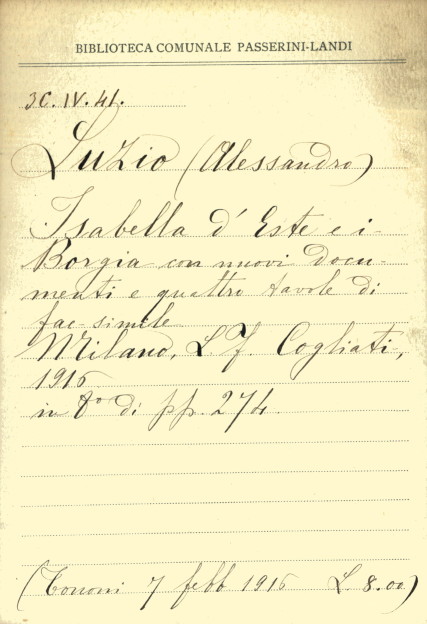 BIBLIOTECA COMUNALE PASSERINI-LANDI
3C.IV.41.
Luzio (Alessandro)
Isabella d'Este e i
Borgia con nuovi docu-
menti e quattro tavole di
fac-simile
Milano, L. F. Cogliati,
1916
in 8º di pp. 274.
(Tononi 7 febb 1916 L. 8.00)